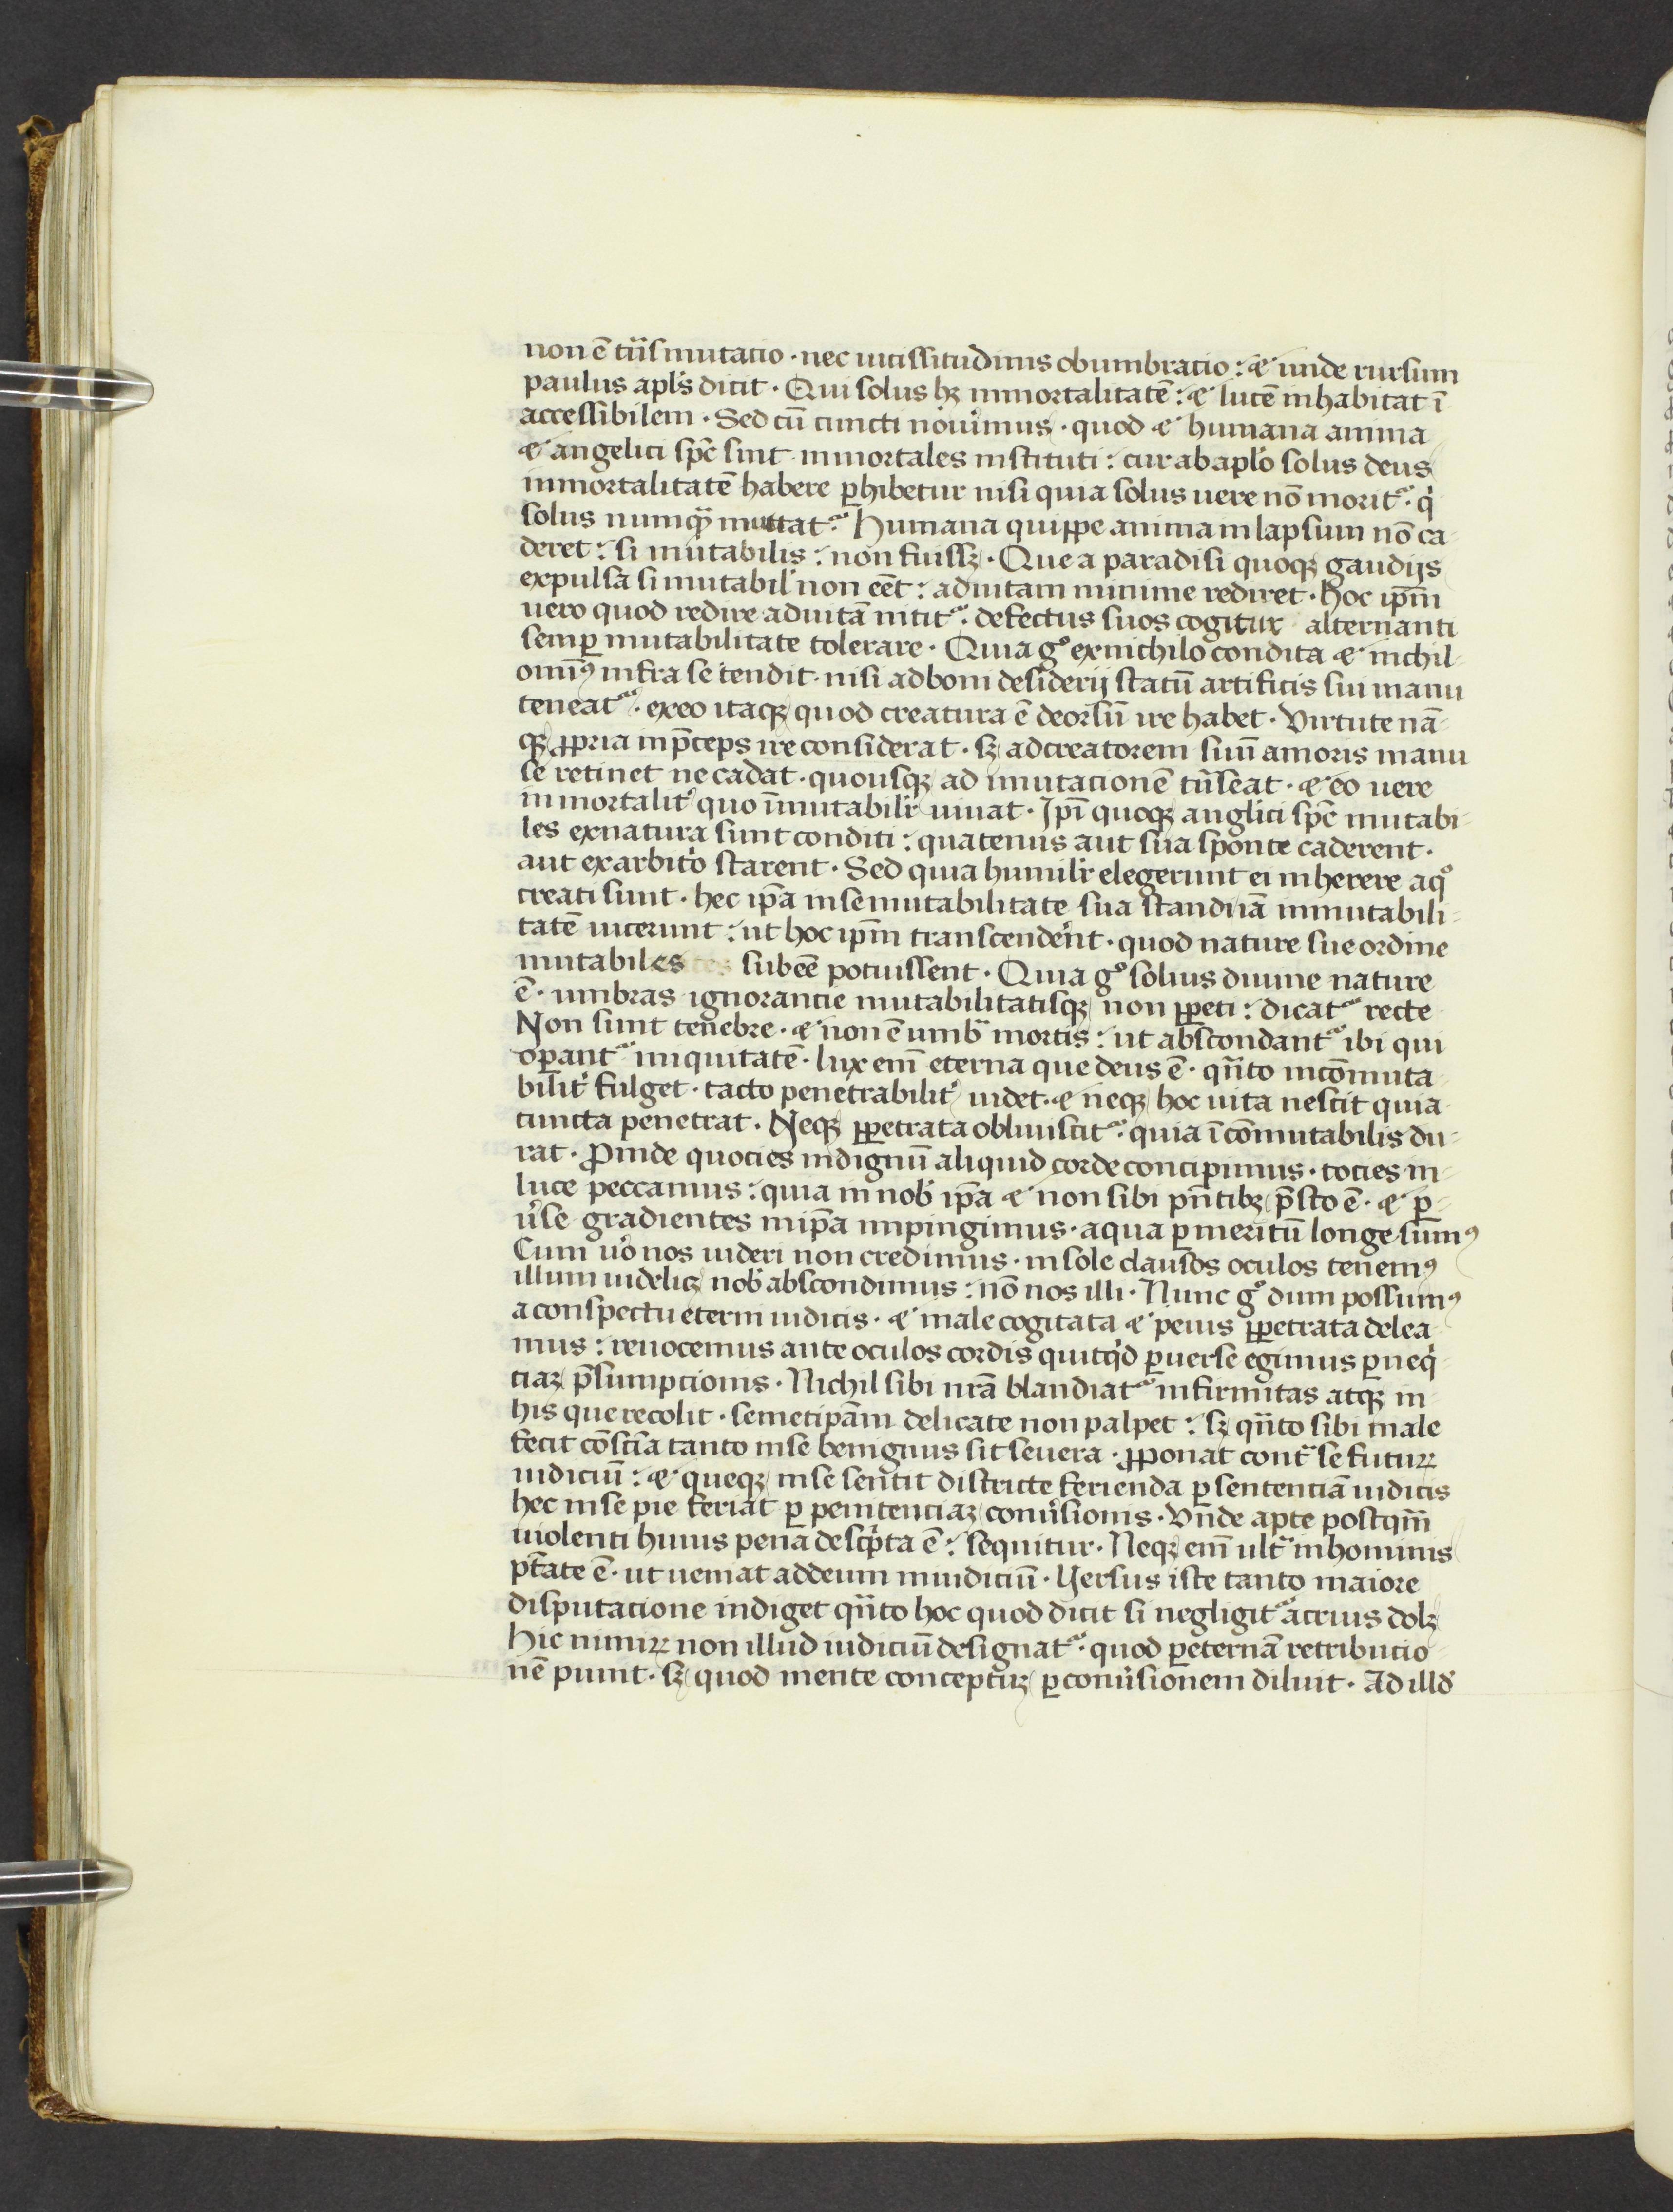 non ē tn̄smutacio · nec uicissitudinis obumbracio : & unde rursum
paulus apl's dicit · Qui solus hꝫ inmortalitatē : & lucē inhabitat ī
accessibilem · Sed cū cuncti nouimus · quod & humana anima
& angelici spc̄ sint inmortales instituti : cur ab aplo solus deus
inmortalitatē habere ꝑhibetur nisi quia solus uere nō morit᷑ · q'
solus numqᷓ muttat᷑ · Humana quippe anima in lapsum nō ca-
deret : si mutabilis : non fuissꝫ · Que a paradisi quoqꝫ gaudijs
expulsa si mutabil' non eēt : ad uitam minime rediret · Hoc ip̄m
uero quod redire ad uitā nitit᷑ · defectus suos cogitur alternanti
semꝑ mutabilitate tolerare · Quia g° ex nichilo condita & nichil-
omīꝰ infra se tendit · nisi ad boni desiderij statū artificis sui manu
teneat᷑ · ex eo itaqꝫ quod creatura ē deorsū ire habet · Virtute nā-
qꝫ ꝓpria in p̄ceps ire considerat · sꝫ ad creatorem suū amoris manu
se retinet ne cadat · quousqꝫ ad inmutacionē tn̄seat · & eo uere
inmortalit' quo īmutabilir' uiuat · Ip̄i quoqꝫ anglici spc̄ mutabi-
les ex natura sunt conditi : quatenus aut sua sponte caderent ·
aut ex arbit'o starent · Sed quia humilir' elegerunt ei inherere a q°
creati sunt · hec ip̄a in se mutabilitate sua standi iā inmutabili-
tatē uicerunt : ut hoc ip̄m transcender̄nt · quod nature sue ordine
mutabiles sub eē potuissent · Quia g° solius diuine nature
ē · umbras ignorantie mutabilitatisqꝫ non ꝑpeti : dicat᷑ recte
Non sunt tenebre · & non ē umbᷓ mortis : ut abscondant᷑ ibi qui
oꝑant᷑ iniquitatē · lux em̄ eterna que deus ē · qn̄to incōmuta-
bilit' fulget · tacto penetrabilit' uidet · & neqꝫ hoc uita nescit quia
cuncta penetrat · Neqꝫ ꝑpetrata obliuiscit᷑ · quia īcōmutabilis du-
rat · Proinde quocies indignū aliquid corde concipimus · tocies in
luce peccamus : quia in nob' ip̄a & non sibi pn̄tibꝫ p̄sto ē · & ꝑ-
u'se gradientes in ip̄a inpingimus · a qua ꝑ meritū longe sumꝰ
Cum u'o nos uideri non credimus · in sole clausos oculos tenemꝰ
illum uidelicꝫ nob' abscondimus : nō nos illi · Nunc g° dum possumꝰ
a conspectu eterni iudicis · & male cogitata & peius ꝑpetrata delea-
mus : reuocemus ante oculos cordis quitq'd ꝑuerse egimus ꝑ neq'-
ciaꝫ p̄sumpcionis · Nichil sibi nr̄a blandiat᷑ infirmitas atqꝫ in
his que recolit · semetip̄am delicate non palpet : sꝫ qn̄to sibi male
fecit cōsciā tanto in se benignius sit seuera · ꝓponat cont' se futurꝝ
iudiciū : & queqꝫ in se sentit districte ferienda ꝑ sententiā iudicis
hec in se pie feriat ꝑ penitenciaꝫ conu'sionis · Vnde apte postqm̄
uiolenti huius pena desc'pta ē : sequitur · Neqꝫ em̄ ult' in hominis
ptāte ē · ut ueniat ad deum in iudiciū · Versus iste tanto maiore
disputacione indiget qn̄to hoc quod dicit si negligit᷑ acrius dolꝫ
Hic nimiꝝ non illud iudiciū designat᷑ · quod ꝑ eternā retributio-
nē punit · sꝫ quod mente conceptuꝫ ꝑ conu'sionem diluit · Ad illd'